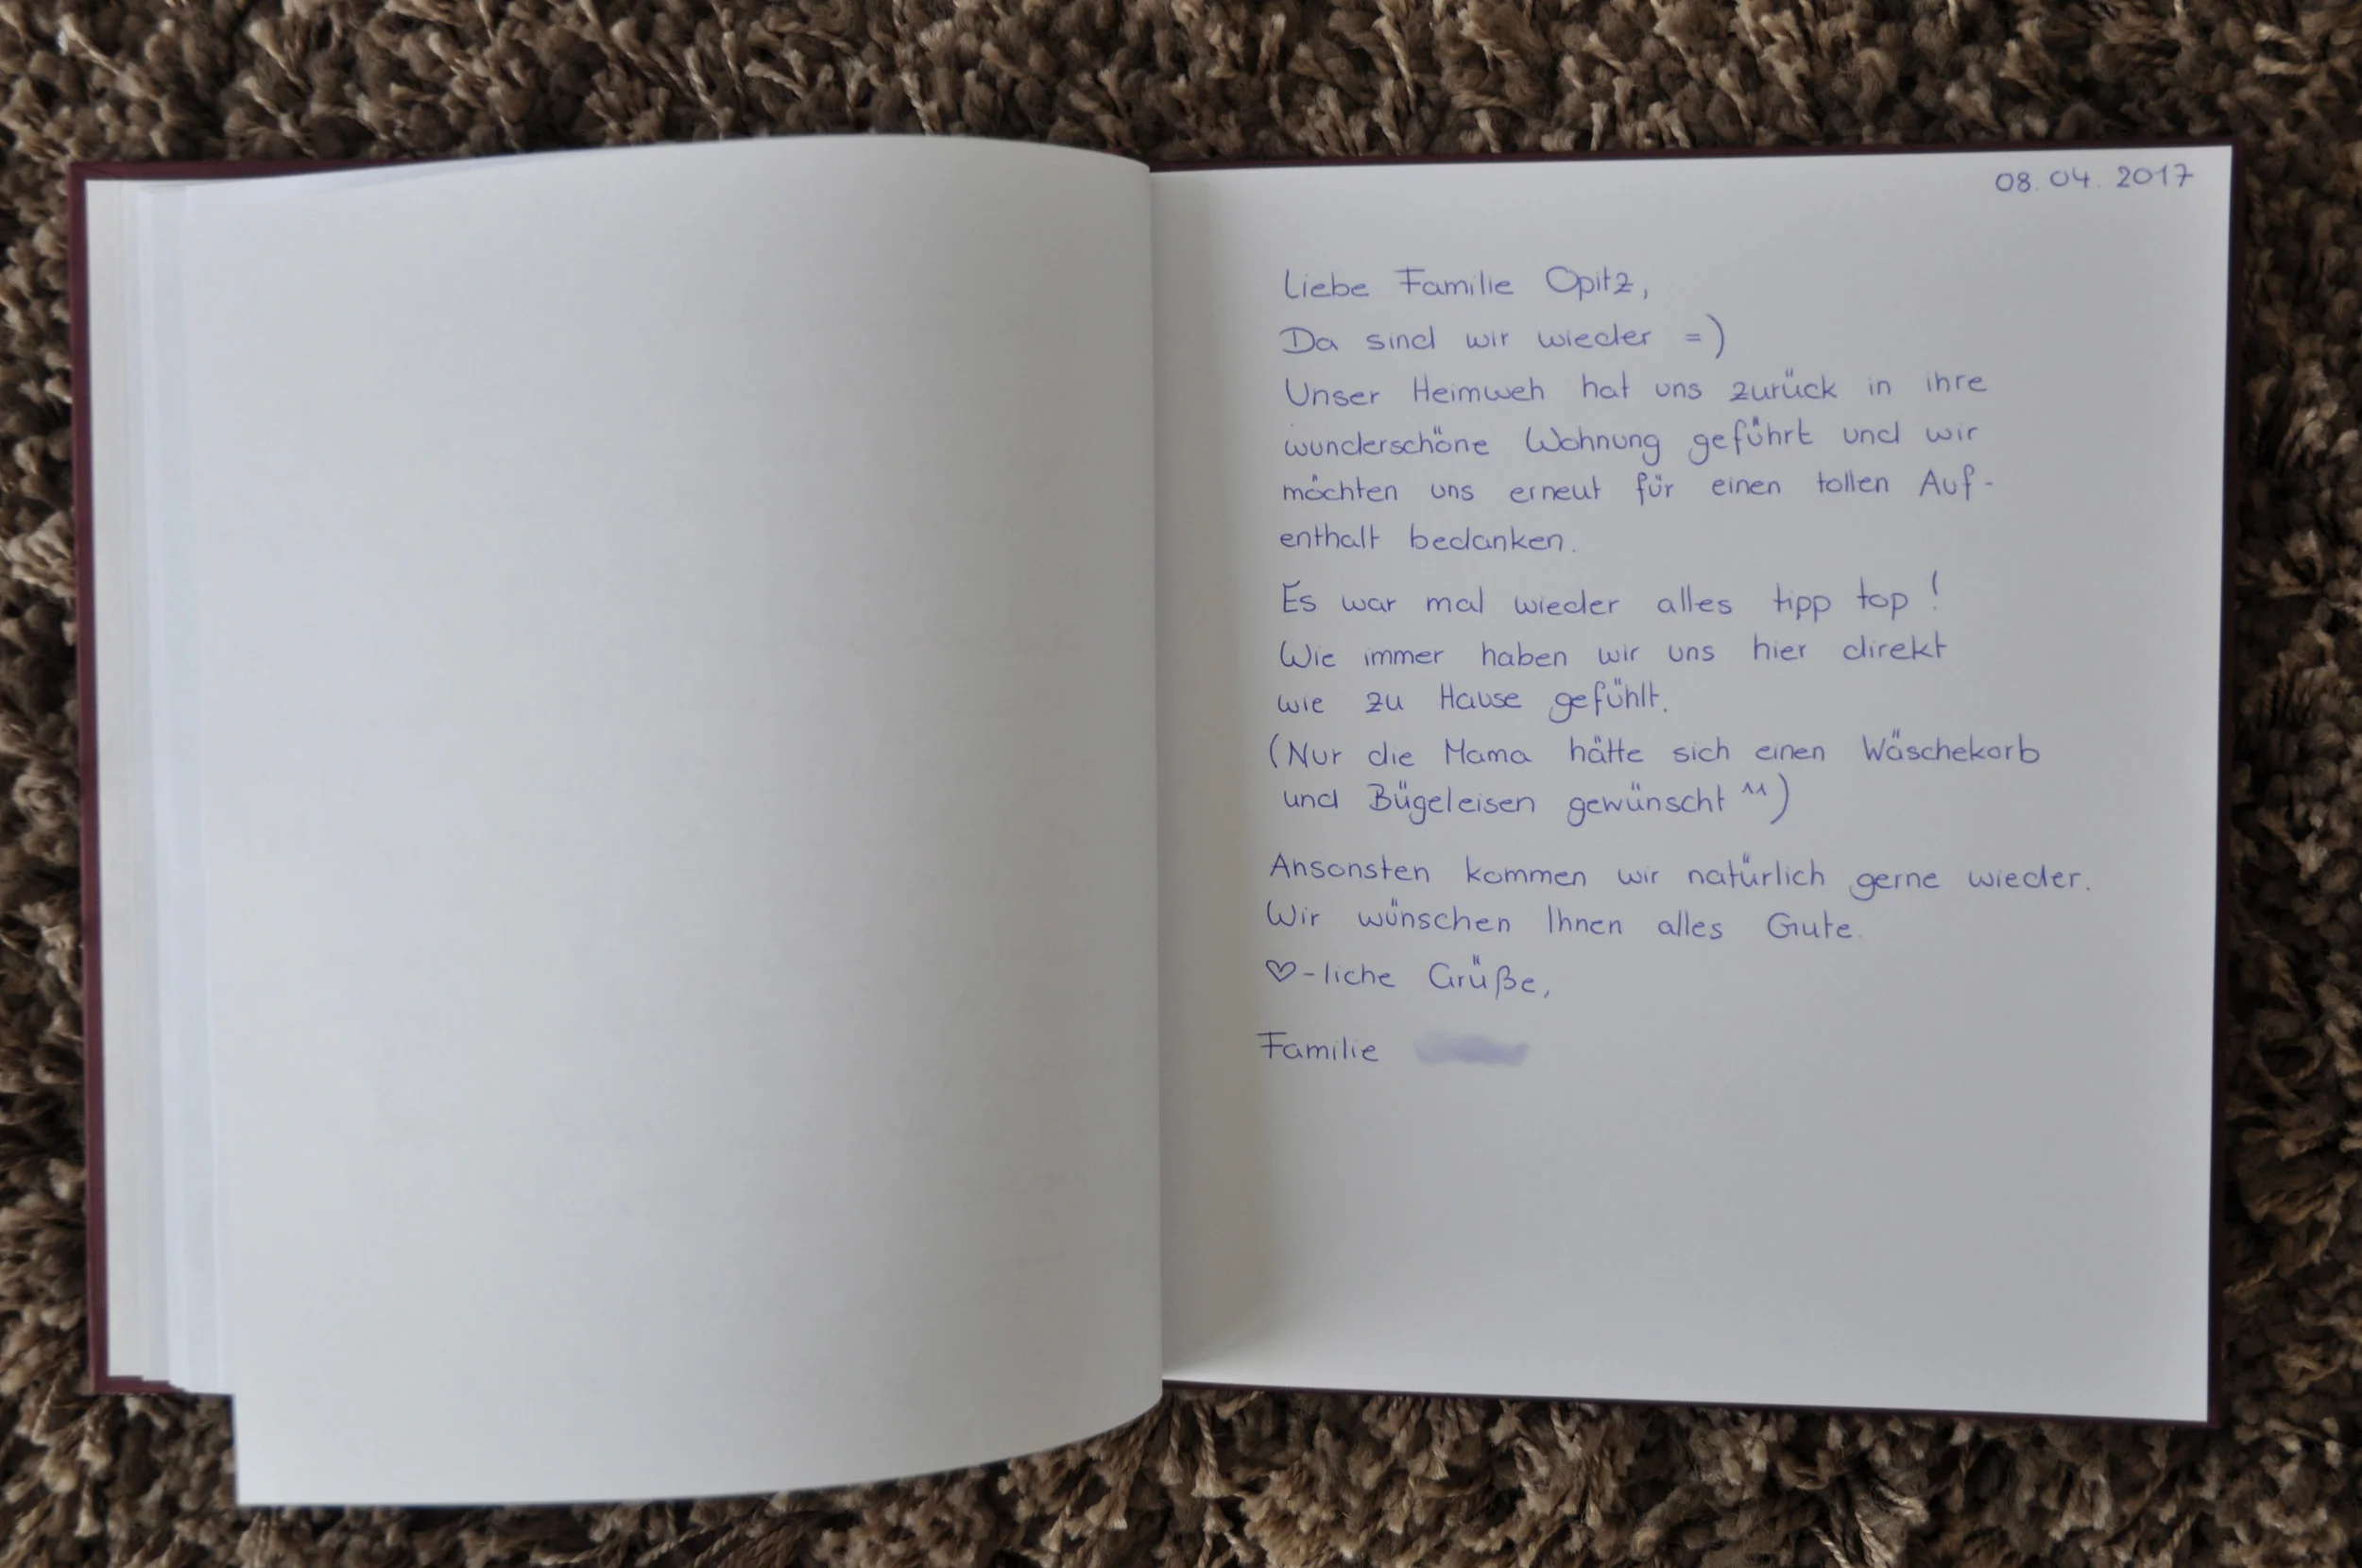 08.04.2017
Liebe Familie Opitz,
Da sind wir wieder =)
Unser Heimweh hat uns zurück in ihre
wunderschöne Wohnung geführt und wir
möchten uns erneut für einen tollen Auf-
enthalt bedanken.
Es war mal wieder alles tipp top!
Wie immer haben wir uns hier direkt
wie zu Hause gefühlt.
(Nur die Mama hätte sich einen Wäschekorb
und Bügeleisen gewünscht ^^)
Ansonsten kommen wir natürlich gerne wieder.
Wir wünschen Ihnen alles Gute.
♡-liche Grüße,
Familie